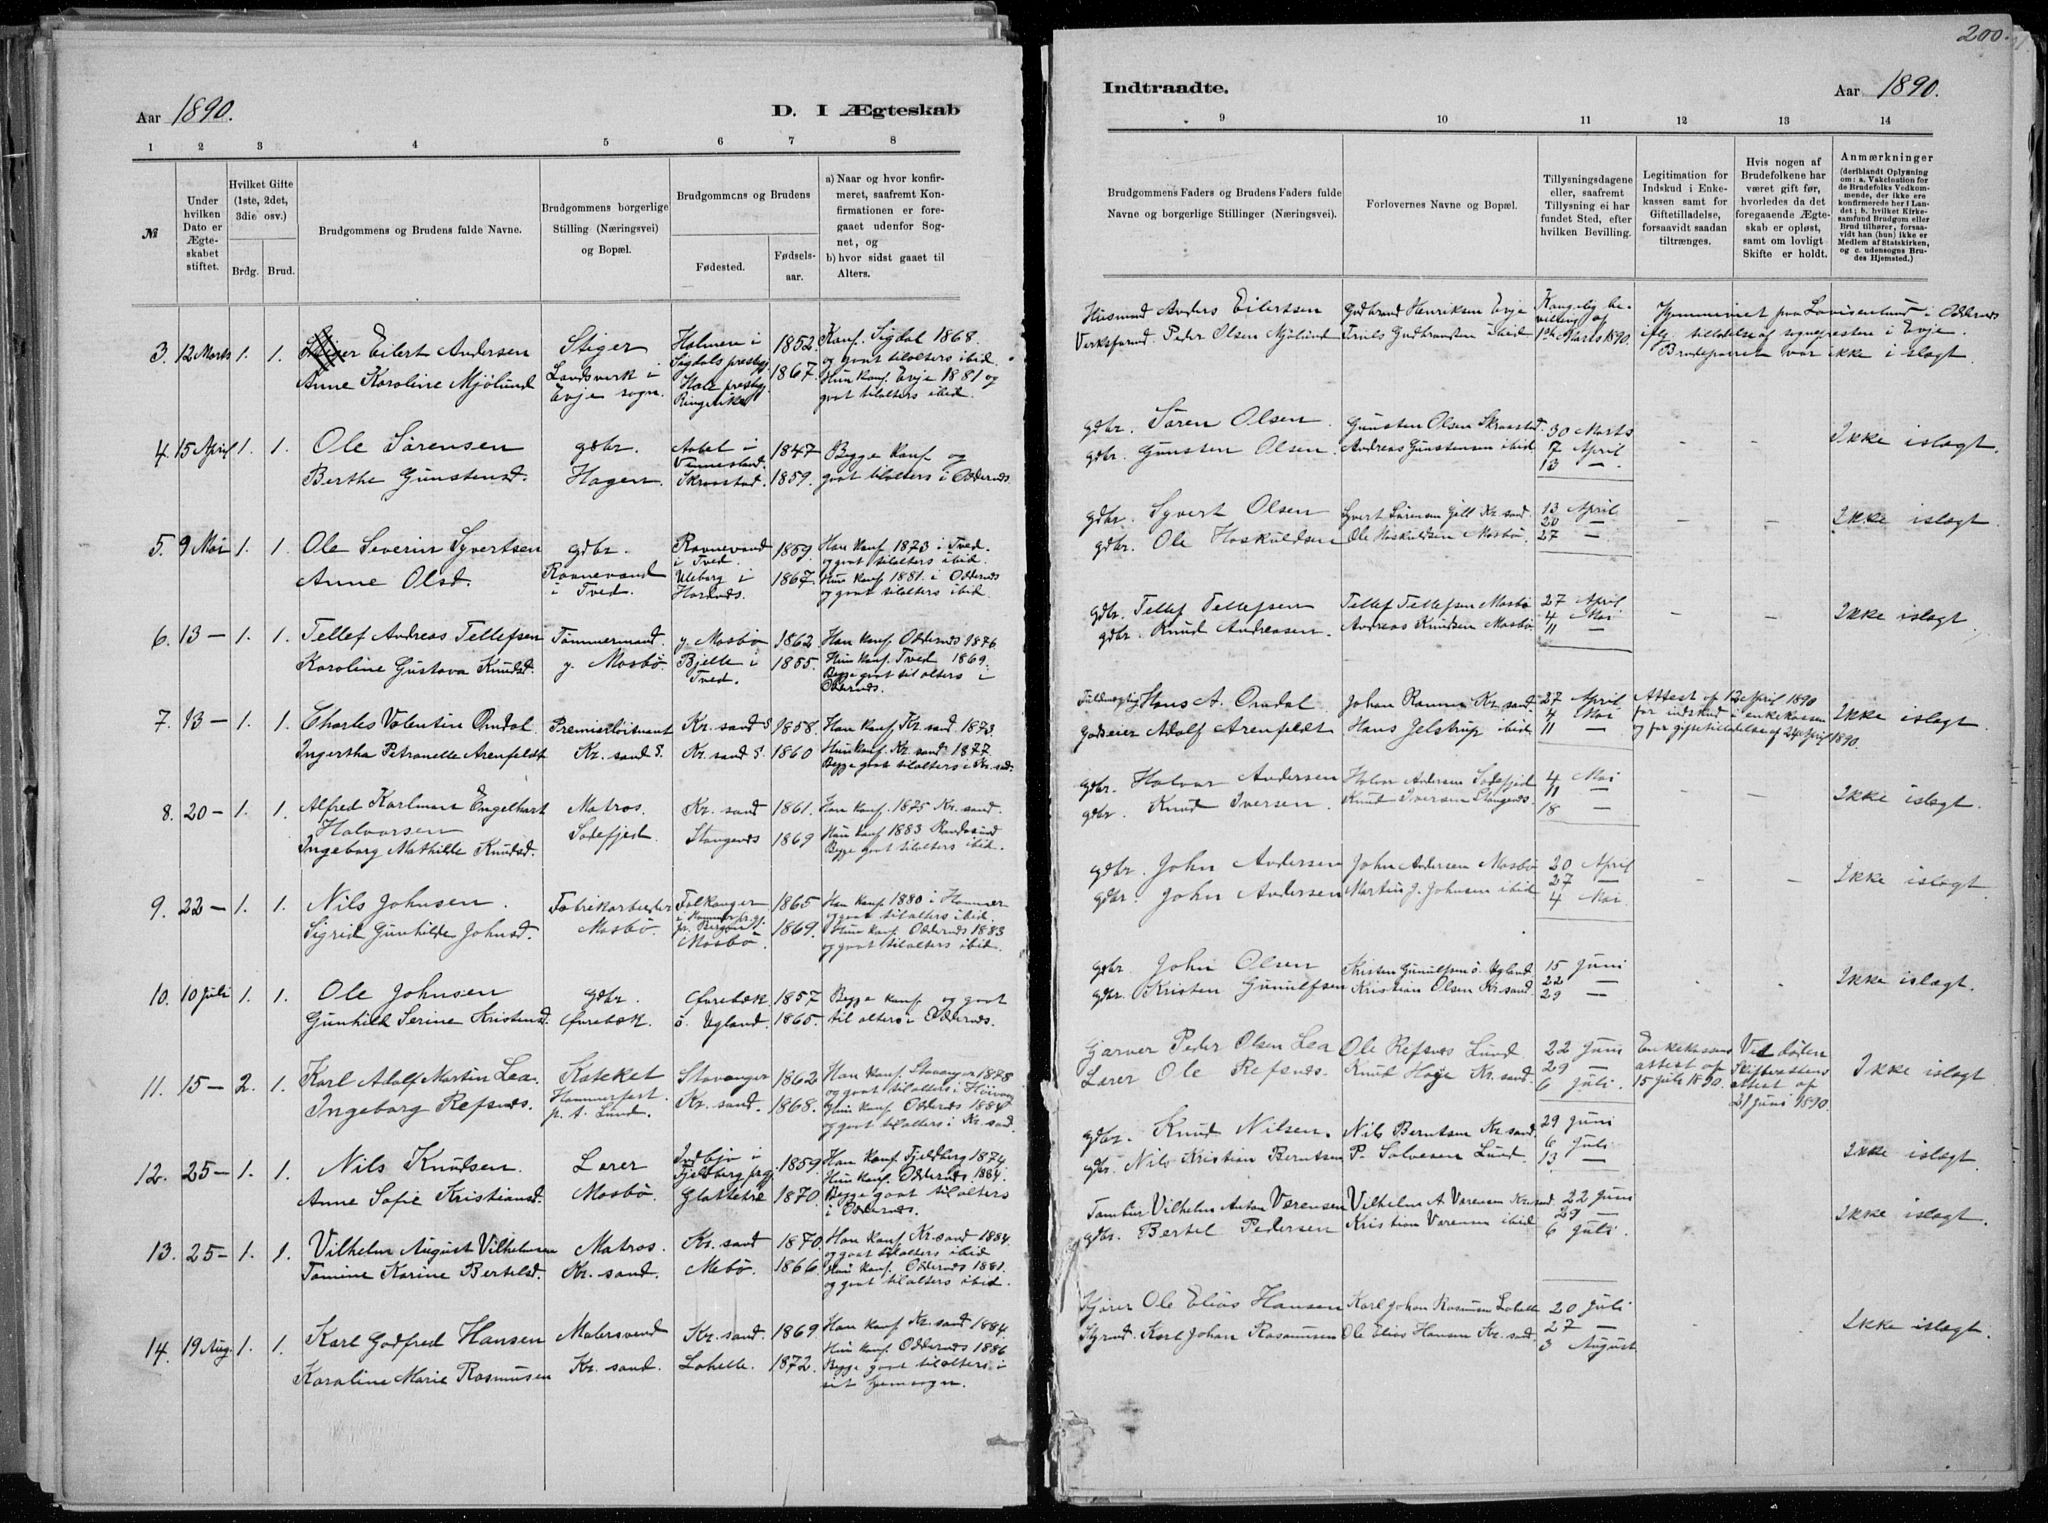 Aar 1890.
D. I Ægteskab
1 2 3 4 5 6 7 8
№
Under hvilken Dato er Ægteskabet stiftet.
Hvilket Gifte (1ste, 2det, 3die osv.)
Brdg. Brud.
Brudgommens og Brudens fulde Navne.
Brudgommens borgerlige Stilling (Næringsvei) og Bopæl.
Brudgommens og Brudens
Fødested.
Fødselsaar.
a) Naar og hvor konfirmeret, saafremt Konfirmationen er foregaaet udenfor Sognet, og
b) hvor sidst gaaet til Alters.
3. 12 Marts 1. 1. Eilert Andersen Stiger Holmen i 1852. Konf. Sigdal 1868.
Anne Karoline Mjølund Landsverk i Sigdals prestgj. 1867. og gaat tilalters ibid.
Evje sogn. Hole prestgj. Hun konf. Evje 1881 og
Ringerike gaat tilalters ibid.
4. 15 April 1. 1. Ole Sørensen gdbr. Aabel i 1847 Begge konf. og
Berthe Gunstensd. Hagen. Vennesland. gaat tilalters i Oddernes.
Skraastad. 1859.
5. 9 Mai 1. 1. Ole Severin Syvertsen gdbr. Ravnevand 1859. Han konf. 1873 i Tved.
Anne Olsd. Ravnevand i Tved. og gaat tilalters ibid.
i Tved. Uleberg i 1867. Hun konf. 1881. i Oddernes
Hornnes. og gaat tilalters ibid.
6. 13 — 1. 1. Tellef Andreas Tellefsen Tømmermand. y. Mosbø 1862 Han konf. Oddernes 1876.
Karoline Gustava Knudsd. y. Mosbø. Bjelle i 1855. Hun konf. Tved 1869.
Tved. Begge gaat til alters i
Oddernes.
7. 13 — 1. 1. Charles Valentin Omdal Premierløitnant Kr. sand S 1858. Han konf. Kr. sand. 1873.
Ingertha Petronelle Arenfeldt Kr. sand S. Kr. sand S. 1860 Hun konf. Kr. sand 1877.
Begge gaat tilalters i Kr. sand.
8. 20 — 1. 1. Alfred Karlman Engelhart Matros. Kr. sand 1861. Han konf. 1875 Kr. sand.
Halvorsen Sodefjed Stangenes 1869 Hun konf 1883 Randøsund
Ingeborg Mathilde Knudsd. Begge gaat tilalters ibid.
9. 22 — 1. 1. Nils Johnsen. Fabrikarbeider Folkanger 1865 Han konf. 1880 i Hammer
Sigrid Gunhilde Johnsd. Mosbø. i Hammer prgj. og gaat tilalters ibid.
pr. Bergen 1869. Hun konf. Oddernes 1883
Mosbø. og gaat tilalters ibid.
10. 10 Juli 1. 1. Ole Johnsen gdbr. Øvrebøk 1857 Begge konf. og gaat
Gunhild Serine Kristensd. Øvrebøk. ö. Ugland. 1865. til alters i Oddernes.
11. 15 — 2. 1. Karl Adolf Martin Lea. Kateket Stavanger 1862 Han konf. Stavanger 1878
Ingeborg Refsnes. Hammerfest Kr. sand. 1868. og gaat tilalters i Høivaag
p. t. Lund. Hun konf. Oddernes 1884
og gaat tilalters i Kr. sand.
12. 25 — 1. 1. Nils Knudsen. Lærer Indbjo i 1859 Han konf. Fjeldberg 1874
Anne Sofie Kristiansd. Mosbø. Fjeldberg prgj. Hun konf. Oddernes 1884.
Glattetre 1870. Begge gaat tilalters
i Oddernes.
13. 25 — 1. 1. Vilhelm August Vilhelmsen Matros. Kr. sand 1870. Han konf. Kr. sand 1884.
Tomine Karine Bertelsd. Kr. sand. Mebø. 1866. og gaat tilalters ibid
Hun konf. Oddernes 1881.
og gaat tilalters ibid.
14. 19 Aug. 1. 1. Karl Godfred Hansen Malersvend Kr. sand. 1869 Han konf Kr. sand 1884.
Karoline Marie Rasmusen Kr. sand. Lahelle. 1872. Hun konf. Oddernes 1886
Begge gaat tilalters i
sit hjemsogn.
200.
Indtraadte.
Aar 1890.
9 10 11 12 13 14
Brudgommens Faders og Brudens Faders fulde Navne og borgerlige Stillinger (Næringsvei).
Forlovernes Navne og Bopæl.
Tillysningsdagene eller, saafremt Tillysning ei har fundet Sted, efter hvilken Bevilling.
Legitimation for Indskud i Enkekassen samt for Giftetilladelse, forsaavidt saadan tiltrænges.
Hvis nogen af Brudefolkene har været gift før, hvorledes da det foregaaende Ægteskab er opløst, samt om lovligt Skifte er holdt.
Anmærkninger (deriblandt Oplysning om: a. Vakcination for de Brudefolks Vedkommende, der ikke ere konfirmerede her i Landet; b. hvilket Kirkesamfund Brudgom eller Brud tilhører, forsaavidt han (hun) ikke er Medlem af Statskirken, og c. udensogns Brudes Hjemsted.)
Husmand Anders Eilertsen Gudbrand Henriksen Evje Kongelig bevilling af Hjemmeviet paa Lovisenlund i Oddernes
Verksformd. Peder Olsen Mjølund Truls Gudbrandsen ibid 1ste Marts 1890. iflg. tilladelse af sognepresten i Evje.
Brudeparret var ikke i slægt.
gdbr. Søren Olsen. Gunsten Olsen Skraastad. 30 Marts - - Ikke islægt.
gdbr. Gunsten Olsen. Andreas Gunstensen ibid 7 April
13 —
gdbr. Syvert Olsen Syvert Sørensen Kr. sand 13 April - - Ikke islægt.
gdbr. Ole Hoskuldsen Ole Hoskuldsen Mosbø. 20 —
27 —
gdbr. Tellef Tellefsen Tellef Tellefsen Mosbø 27 April - - Ikke islægt.
gdbr. Knud Andreasen. Andreas Knudsen Mosbø 4 Mai
11 —
Fuldmægtig Hans A. Omdal. Johan Kr. sand. 27 April Attest af 12 April 1890 Ikke islægt.
Godseier Adolf Arenfeldt Hans Jelstrup ibid 4 Mai for indskud i enkekassen
11 — og for giftetilladelse af 24 April 1890.
gdbr. Halvor Andersen Halvor Andersen Sodefjed 4 Mai - - Ikke islægt.
gdbr. Knud Iversen. Knud Iversen Stangenes 11 —
18 —
gdbr. John Andersen John Andersen Mosbø 20 April - - Ikke islægt.
gdbr. John Andersen Martin J. Johnsen ibid 27 —
4 Mai.
gdbr. John Olsen Kristen Gunulfsen ö. Ugland. 15 Juni - - Ikke islægt.
gdbr. Kristen Gunulfsen Kristian Olsen Kr. sand. 22 —
29 —
Garver Peder Olsen Lea Ole Refsnes Lund 22 Juni Enkekassens Ved døden Ikke islægt.
Lærer Ole Refsnes. Knud Høye Kr. sand. 29 — attest af Skifterettens
6 Juli. 15 Juli 1890. attest af
21 Juni 1890.
gdbr. Knud Nilsen. Nils Berntsen Kr. sand. 29 Juni Ikke islægt.
gdbr. Nils Kristian Berntsen P. Salvesen Lund. 6 Juli
13 —
Tambur Vilhelm Anton Værensen Vilhelm A Værensen Kr. sand 22 Juni Ikke islægt.
gdbr. Bertel Pedersen Kristian Værensen ibid. 29 —
6 Juli.
Kjører Ole Elias Hansen Karl Johan Rasmusen Lahelle 20 Juli - - Ikke islægt.
Styrmd. Karl Johan Rasmusen Ole Elias Hansen Kr. sand. 27 —
3 August